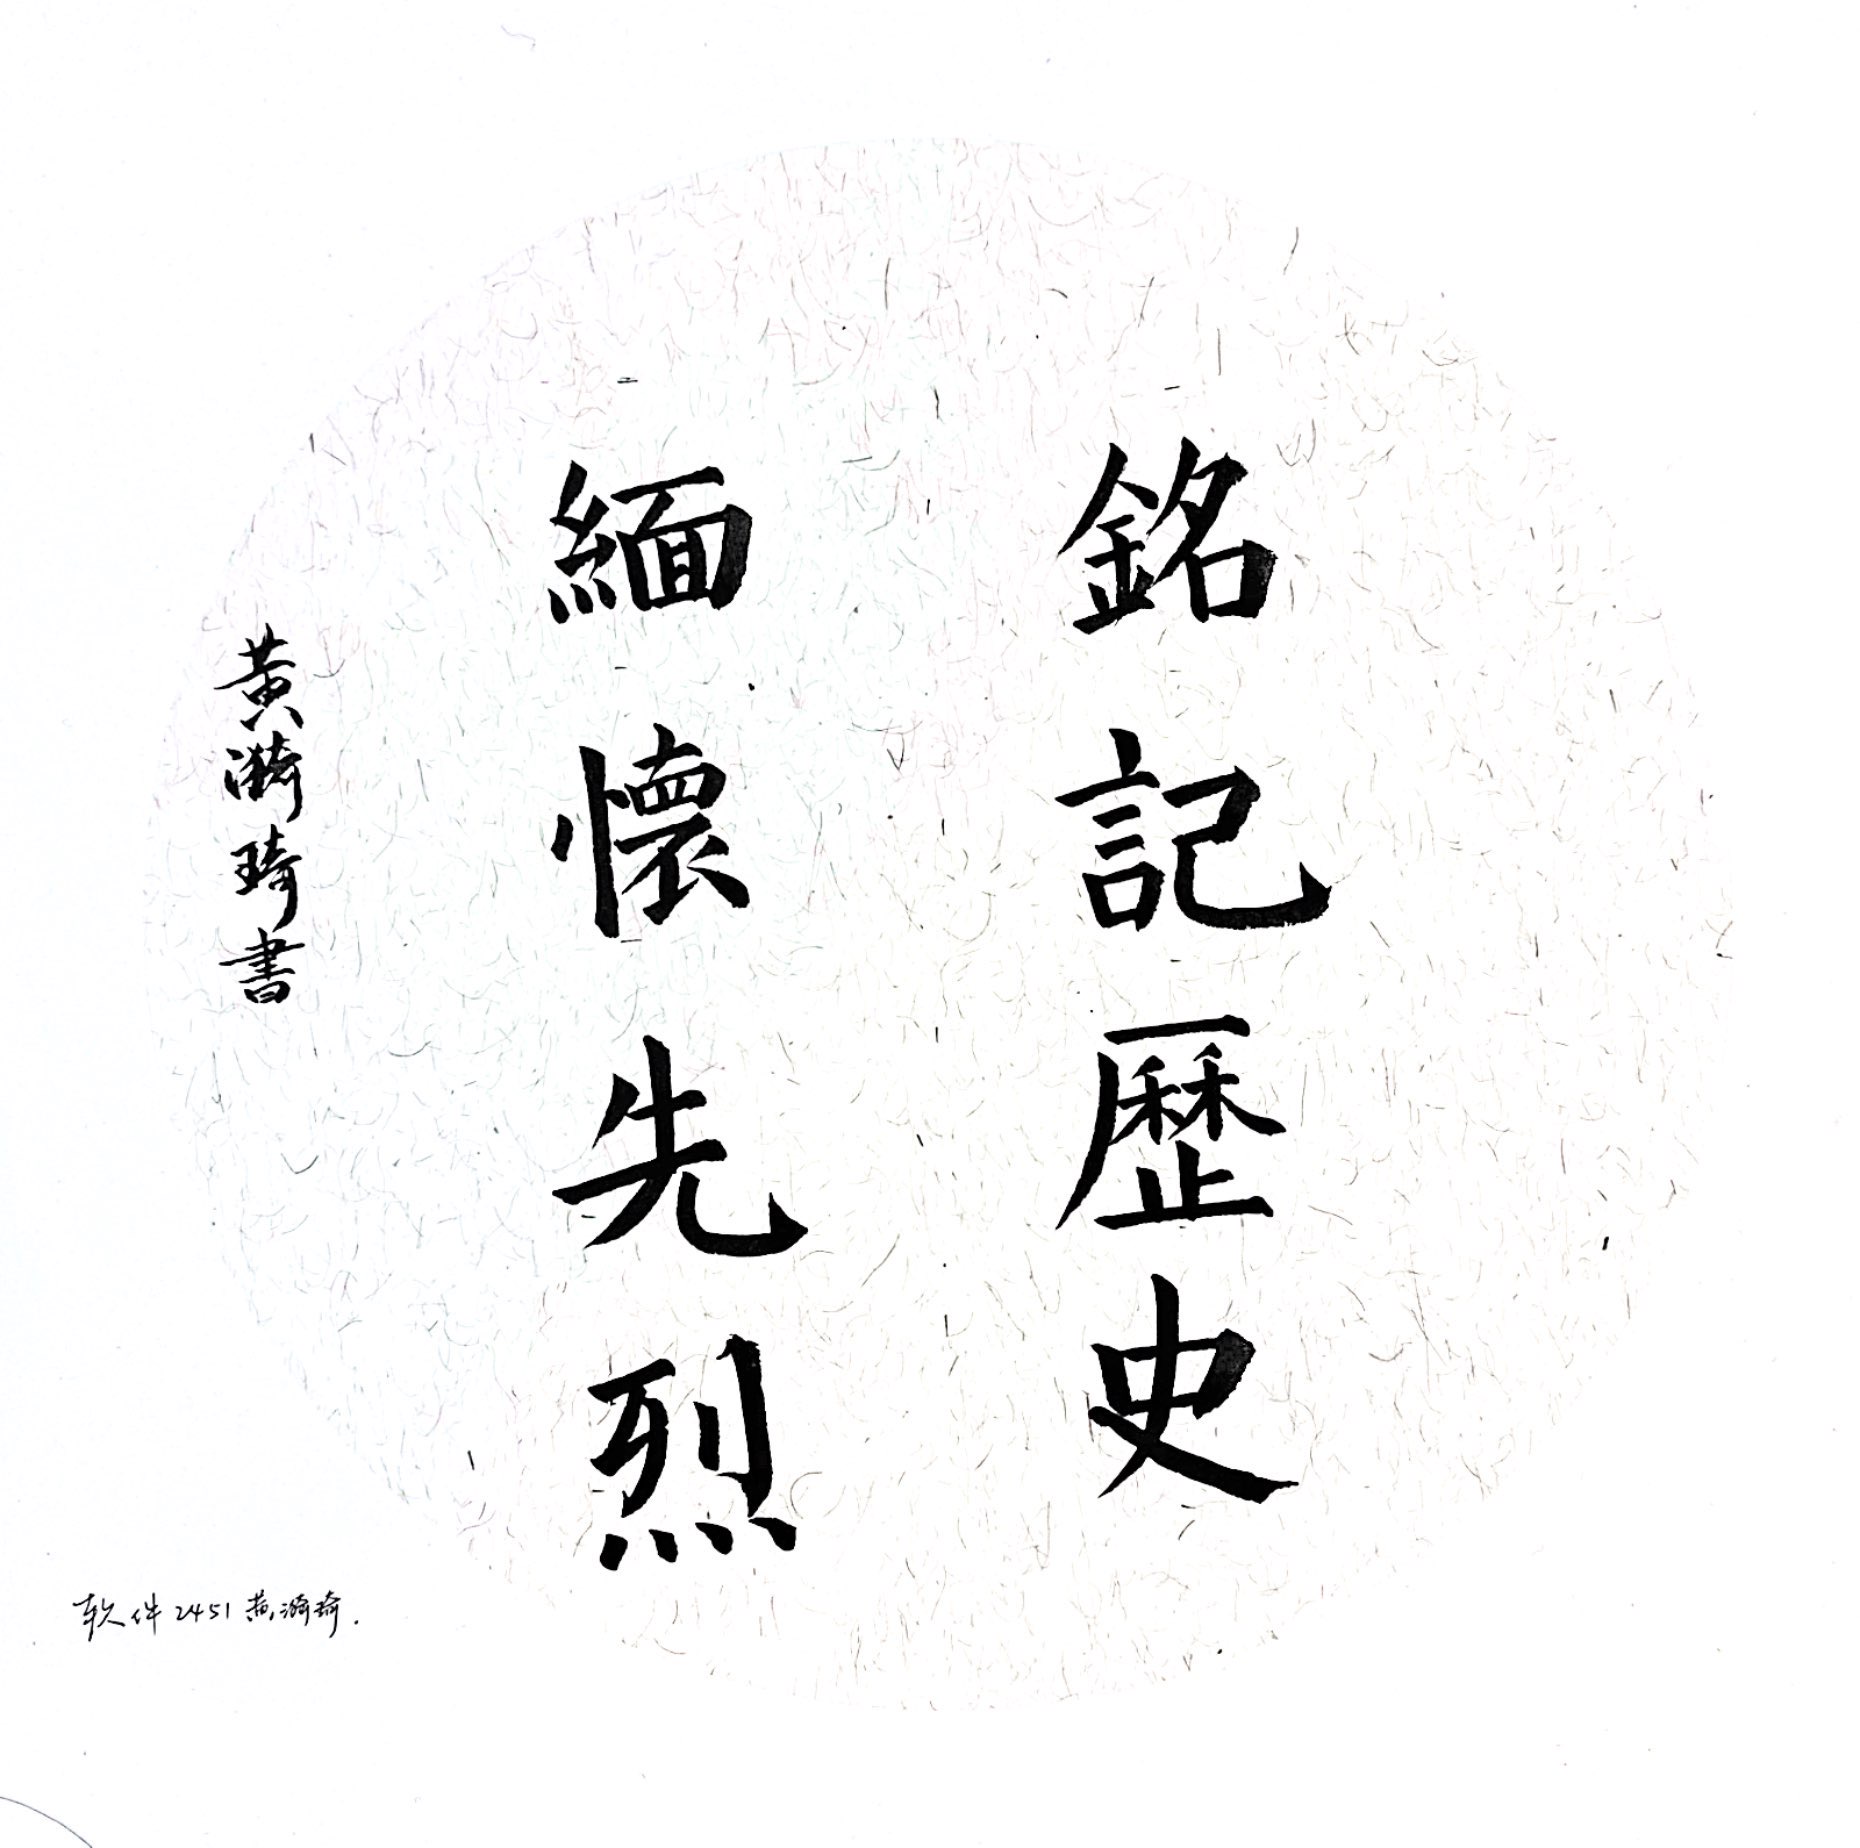 銘記歷史
緬懷先烈
黃漪琦書
软件2451 黄漪琦.